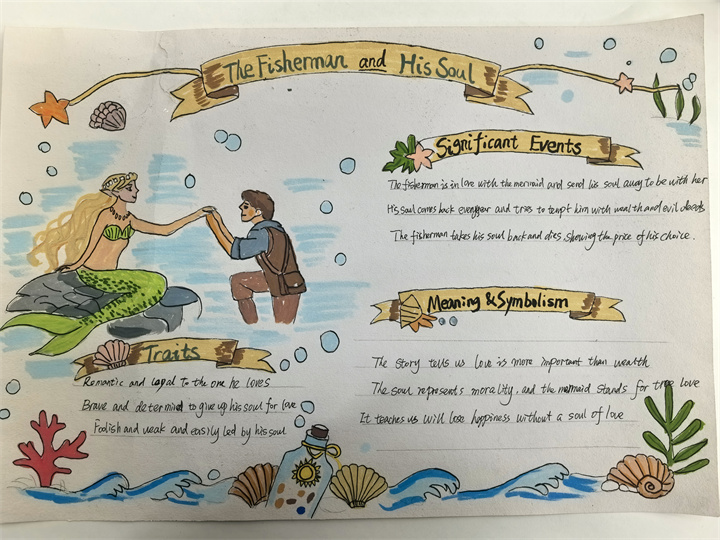 The Fisherman and His Soul
Significant Events
The fisherman is in love with the mermaid and send his soul away to be with her
His soul comes back every year and tries to tempt him with wealth and evil deeds
The fisherman takes his soul back and dies, showing the price of his choice.
Meaning & Symbolism
The story tells us love is more important than wealth
The soul represents morality, and the mermaid stands for true love
It teaches us will lose happiness without a soul of love
Traits
Romantic and loyal to the one he loves
Brave and determind to give up his soul for love
Foolish and weak and easily led by his soul